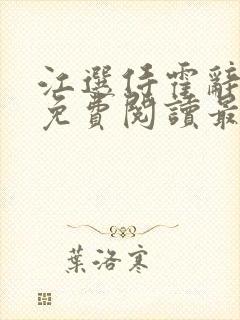 江選任霍辭
免費閱讀最
葉洛寒